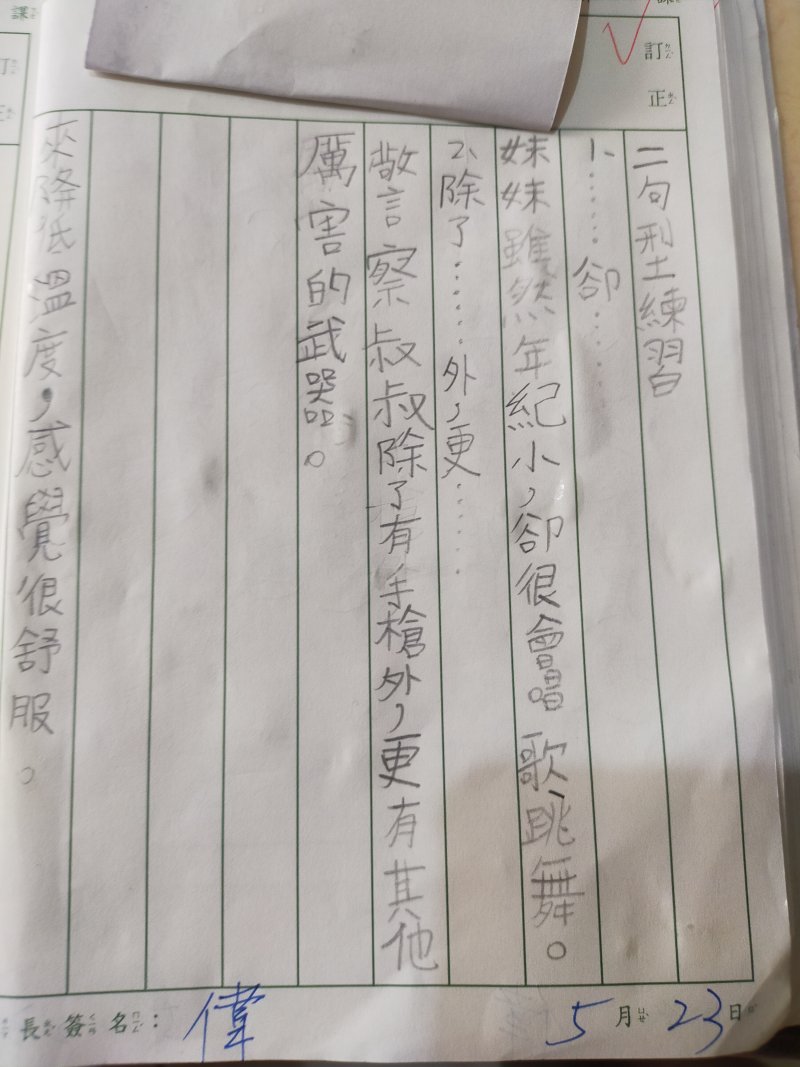 課
訂正
二句型練習
1、……卻……
妹妹雖然年紀小，卻很會唱歌、跳舞。
2、除了……外，更……
警察叔叔除了有手槍外，更有其他
厲害的武器。
來降低溫度，感覺很舒服。
長簽名：偉
5月23日
課
訂
正